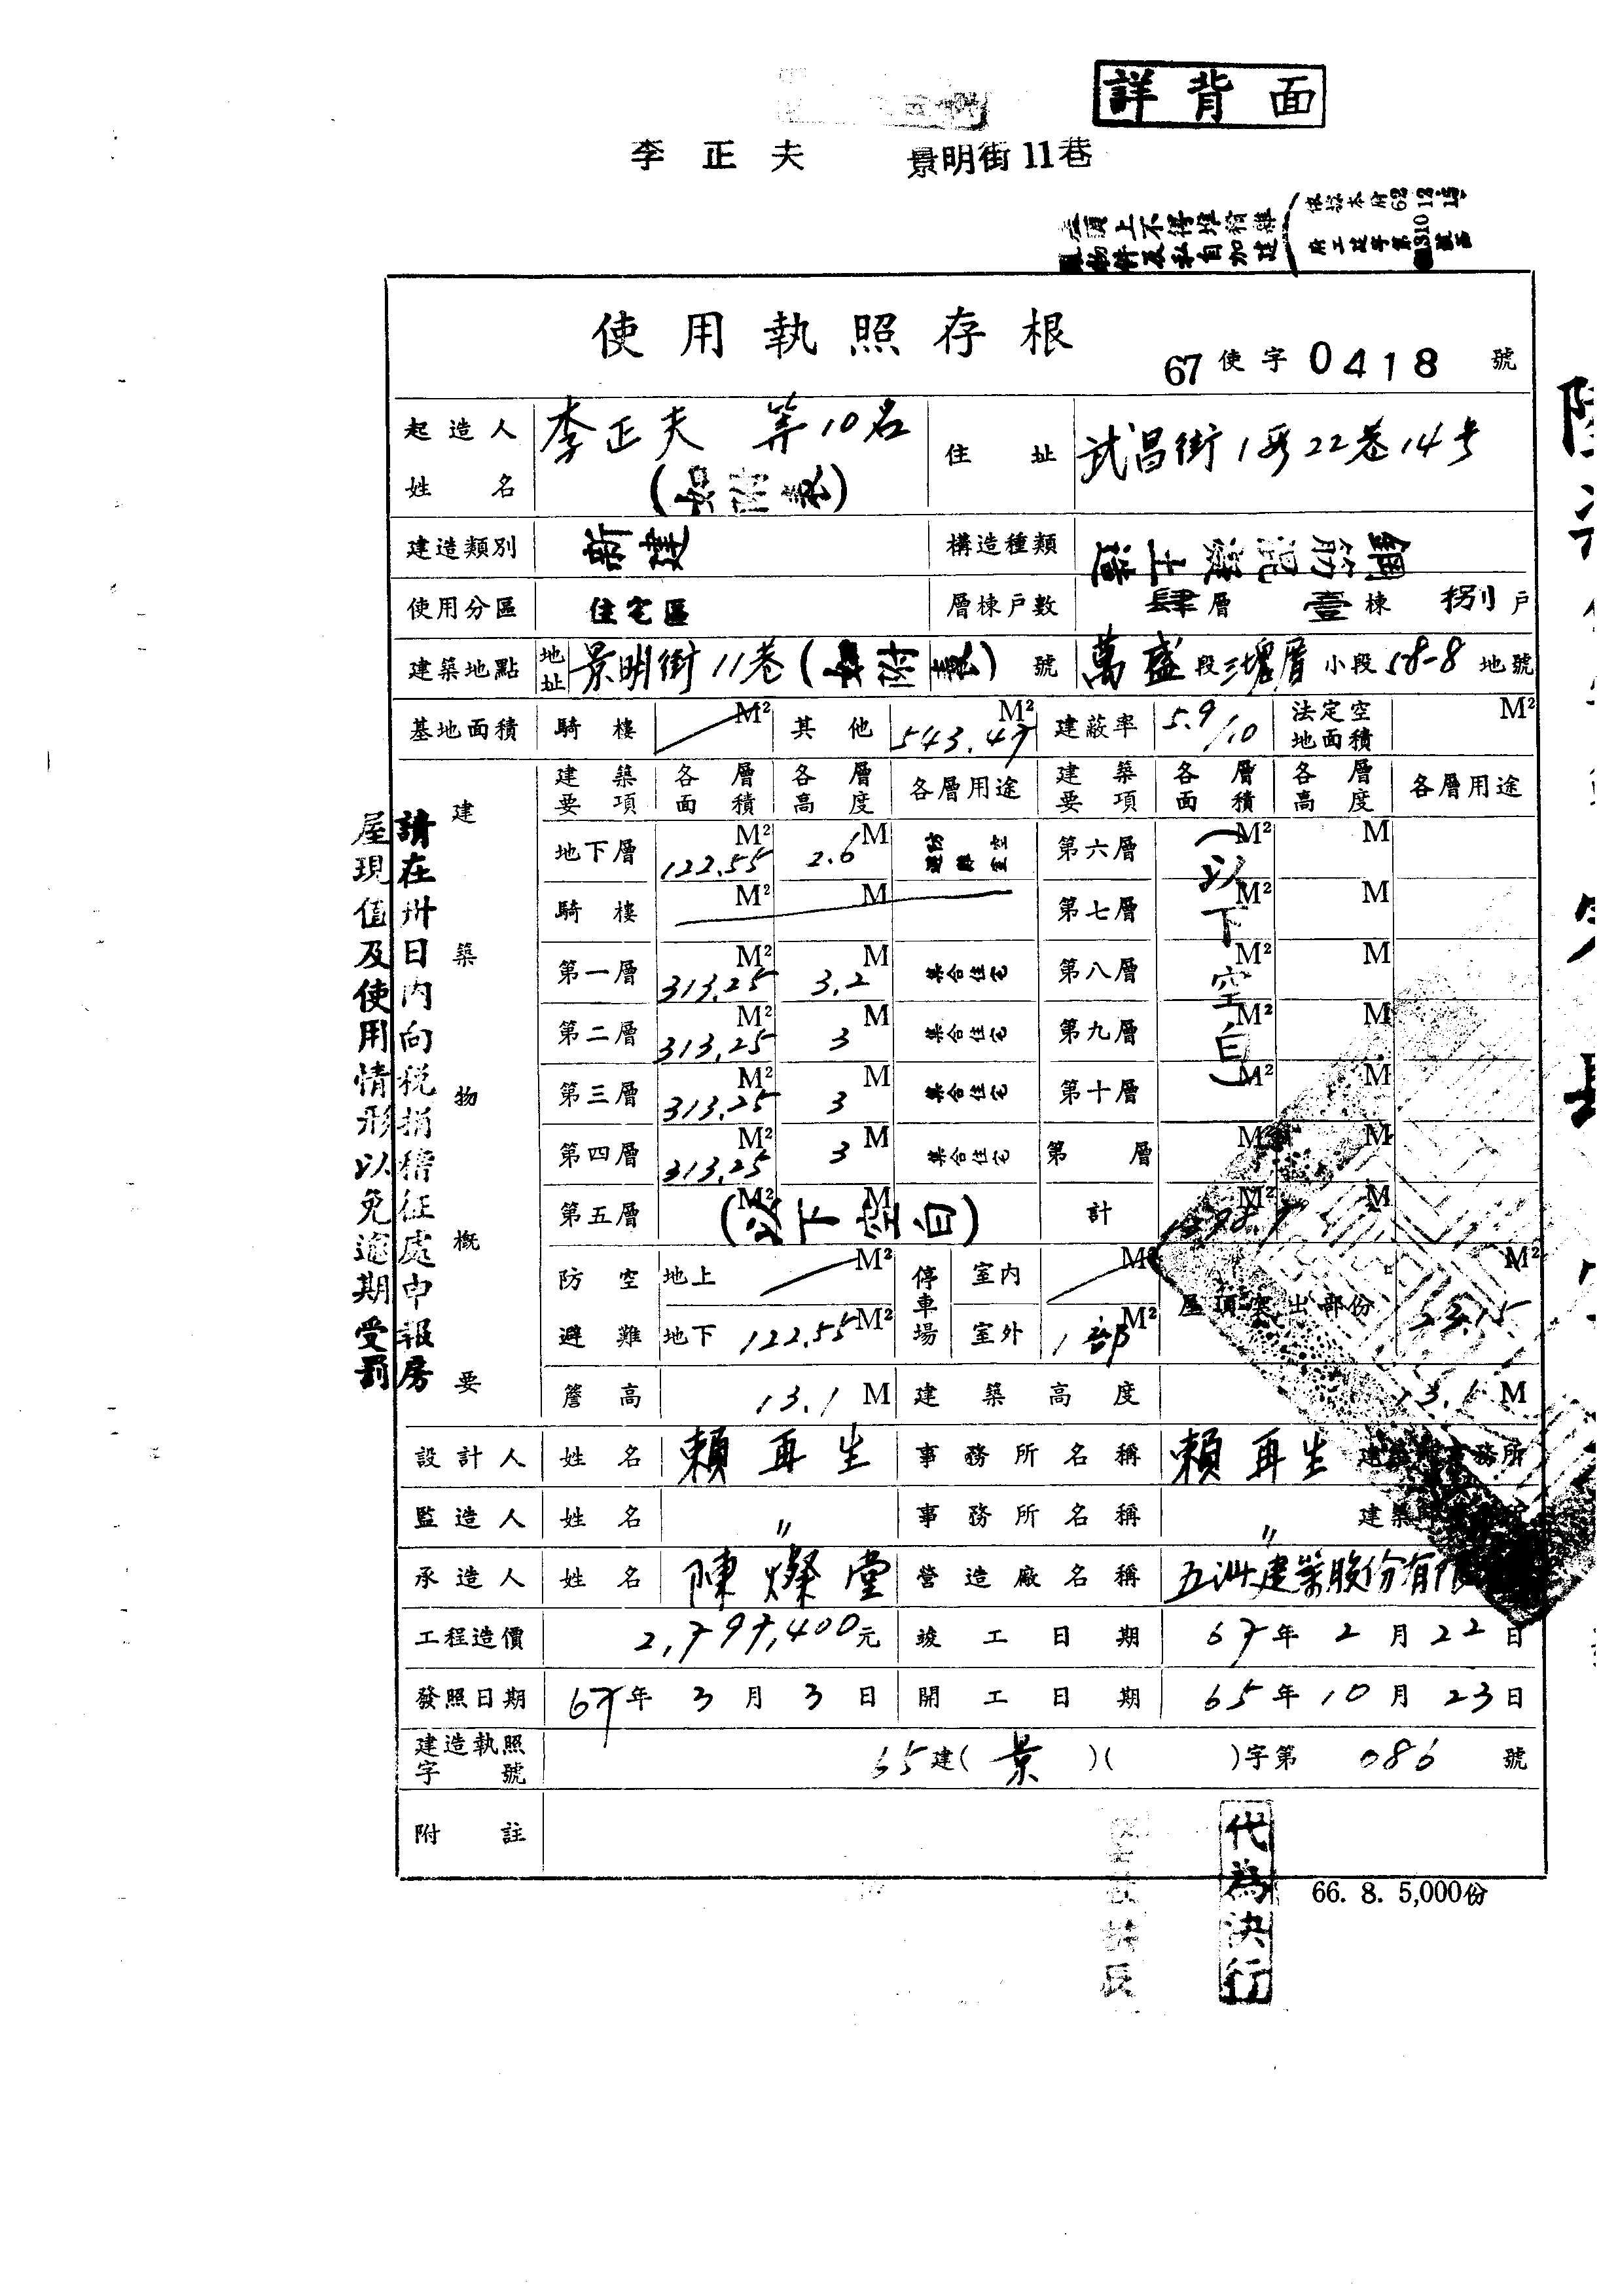 詳背面
李正夫 景明街11巷
使用執照存根
67使字0418號
起造人姓名 李正夫 等10名 住址 武昌街1段22巷14号
建造類別 新建 構造種類 鋼筋混凝土造
使用分區 住宅區 層棟戶數 肆層 壹棟 捌戶
建築地點 地址 景明街11巷( )號 萬盛段 小段58-8地號
基地面積 騎樓 M² 其他 543.47 M² 建蔽率 5.9/10 法定空地面積 M²
建築物概要
建築要項 各層面積 各層高度 各層用途 建築要項 各層面積 各層高度 各層用途
地下層 122.55 M² 2.6 M 防空避難室 第六層 M² M
騎樓 M² M 第七層 M² M
第一層 313.25 M² 3.2 M 集合住宅 第八層 M² M
第二層 313.25 M² 3 M 集合住宅 第九層 M² M
第三層 313.25 M² 3 M 集合住宅 第十層 M² M
第四層 313.25 M² 3 M 集合住宅 第 層 M² M
第五層 M² M (以下空白) 計 M² M
(以下空白)
防空避難 地上 M² 停車場 室內 M² 屋頂突出部份 M²
地下 122.55 M² 室外 1部 M²
簷高 13.1 M 建築高度 13.1 M
設計人 姓名 賴再生 事務所名稱 賴再生 建築師事務所
監造人 姓名 〃 事務所名稱 〃
承造人 姓名 陳燦堂 營造廠名稱
工程造價 2,797,400元 竣工日期 67年2月22日
發照日期 67年3月3日 開工日期 65年10月23日
建造執照字號 65建(景)( )字第086號
附註
請在卅日內向稅捐稽征處申報房
屋現值及使用情形以免逾期受罰
代為決行
66. 8. 5,000份